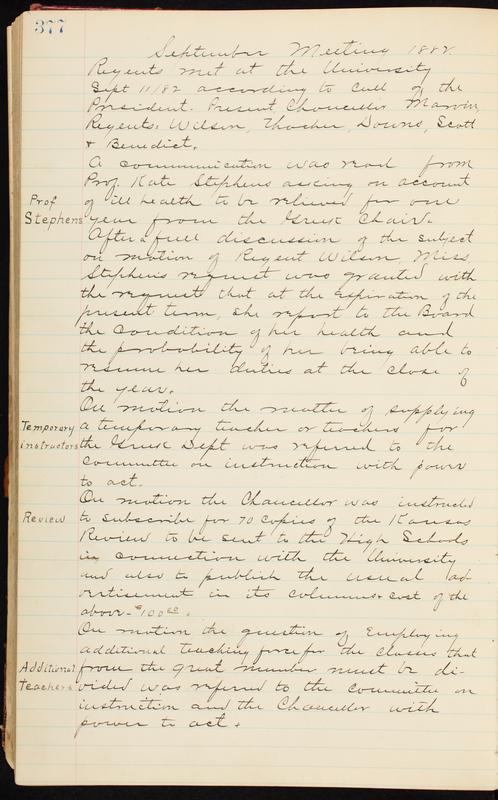 377
September Meeting 1882.
Regents met at the University
Sept 11/82 according to call of the
President. Present Chancellor Marvin,
Regents: Wilson, Thacher, Downs, Scott
& Benedict.
A communication was read from
Prof. Kate Stephens asking on account
Prof Stephens
of ill health to be relieved for one
year from the Greek Chair.
After a full discussion of the subject
on motion of Regent Wilson, Miss
Stephens request was granted with
the request that at the expiration of the
present term, she report to the Board
the condition of her health and
the probability of her being able to
resume her duties at the close of
the year.
On motion the matter of supplying
Temporary instructors
a temporary teacher or teachers for
the Greek Dept was referred to the
committee on instruction with power
to act.
On motion the Chancellor was instructed
Review
to subscribe for 70 copies of the Kansas
Review to be sent to the High Schools
in connection with the University
and also to publish the usual ad-
vertisement in its columns & cost of the
above - $100.00.
On motion the question of Employing
additional teaching force for the classes that
Additional Teachers
from the great number must be di-
vided was referred to the committee on
instruction and the Chancellor with
power to act.